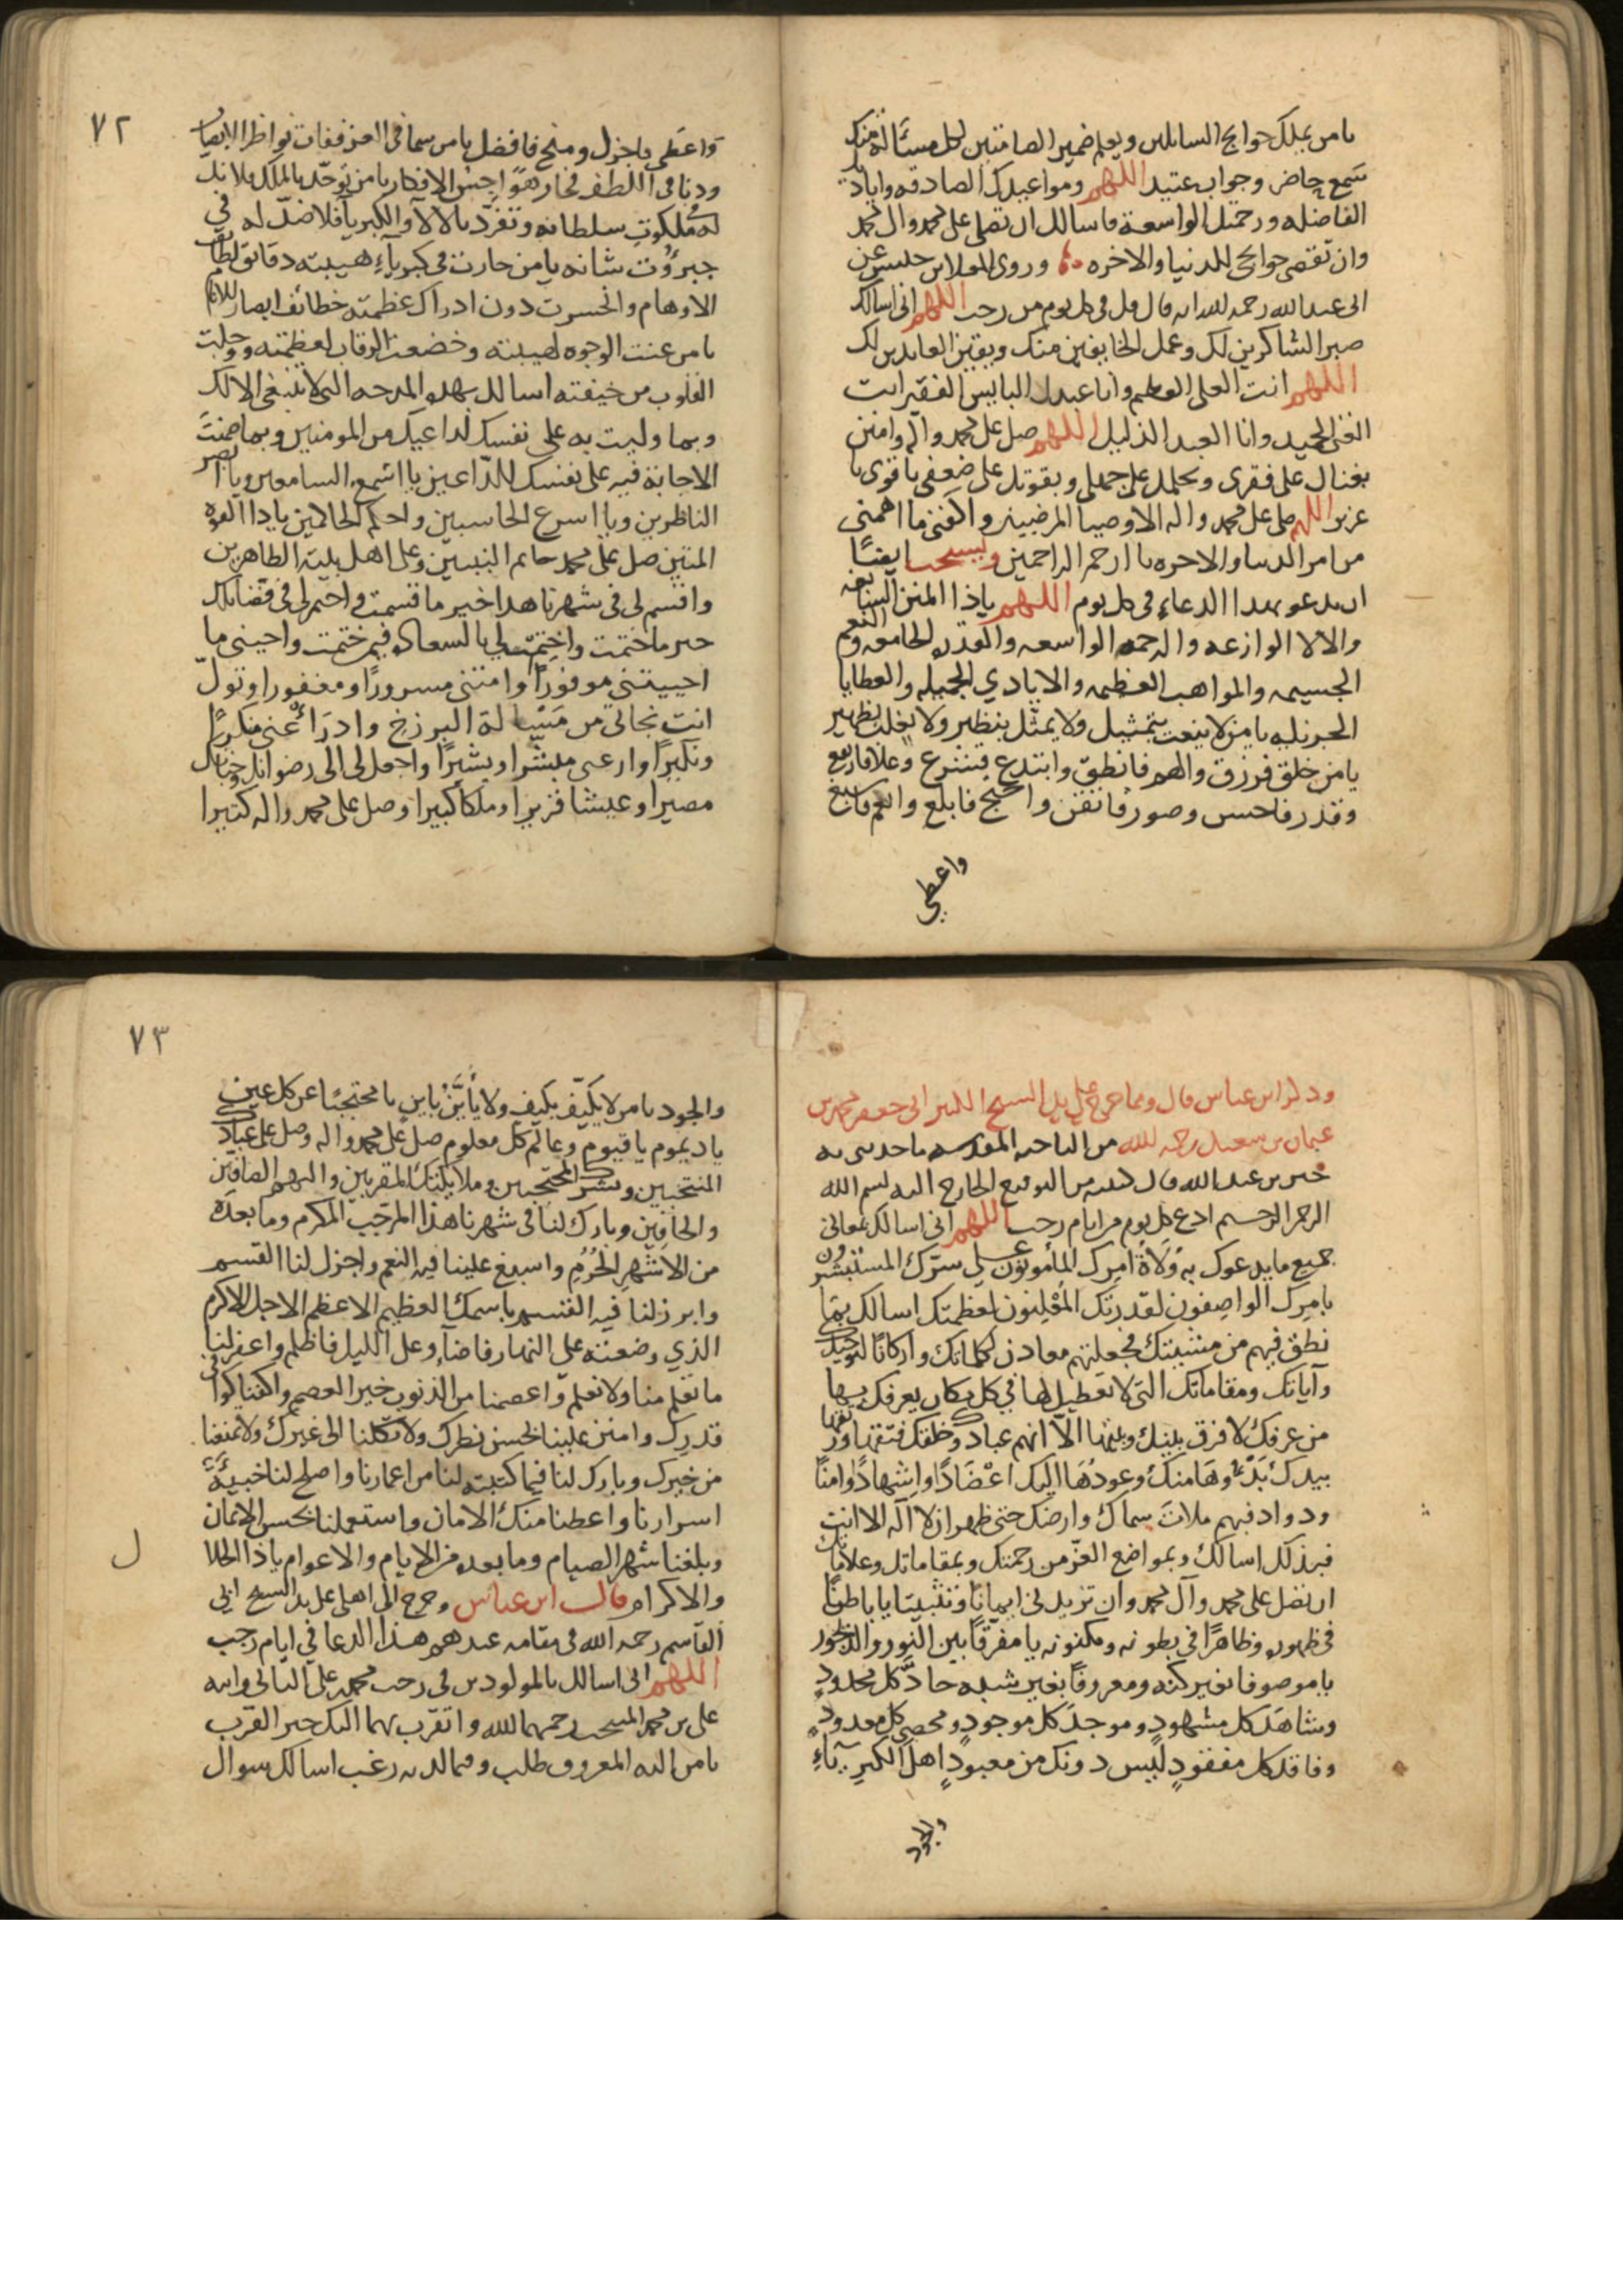 يا من يملك حوايج السائلين ويعلم ضمير الصامتين لكل مسئالة منك
سمع حاضر وجواب عتيد اللهم ومواعيدك الصادقه واياديك
الفاضله ورحمتك الواسعة فاسالك ان تصلى على محمد وال محمد
وان تقضى حوايجى للدنيا والاخره وروى المعلا بن خنيس عن
ابى عبد الله رحمه الله انه قال قل فى كل يوم من رجب اللهم انى اسالك
صبر الشاكرين لك وعمل الخايفين منك ويقين العابدين لك
اللهم انت العلى العظيم وانا عبدك البايس الفقير انت
الغنى الحميد وانا العبد الذليل اللهم صل على محمد واله وامنن
بغناك على فقرى وبحلمك على جهلى وبقوتك على ضعفى يا قوى يا
عزيز اللهم صل على محمد واله الاوصيا المرضيين واكفنى ما اهمنى
من امر الدنيا والاخره يا ارحم الراحمين ويستحب ايضًا
ان يدعو بهذا الدعاء فى كل يوم اللهم ياذا المنن السابغه
والالا الوازعه والرحمه الواسعه والقدره الجامعه والنعم
الجسيمه والمواهب العظيمه والايادي الجميله والعطايا
الجزيله يا من لا ينعت بتمثيل ولا يمثل بنظير ولا يغلب بظهير
يا من خلق فرزق والهم فانطق وابتدع فشرع وعلا فارتفع
وقدر فاحسن وصور فاتقن واحتج فابلغ وانعم فاسبغ
واعطى
٧٢
واعطى فاجزل ومنح فافضل يا من سما فى العز ففات نواظر الابصار
ودنا فى اللطف فجاز هواجس الافكار يا من توحّد بالملك فلا ند
له فى ملكوت سلطانه وتفرّد بالالآ والكبريآ فلا ضدّ له في
جبروت شانه يا من حارت فى كبرياء هيبته دقايق لطايف
الاوهام وانحسرت دون ادراك عظمته خطائف ابصار الانام
يا من عنت الوجوه لهيبته وخضعت الرقاب لعظمته ووجلت
القلوب من خيفته اسالك بهذه المدحه التى لا تنبغى الا لك
وبما وايت به على نفسك لداعيك من المومنين وبما ضمنت
الاجابة فيه على نفسك للدّاعين يا اسمع السامعين ويا ابصر
الناظرين ويا اسرع الحاسبين واحكم الحاكمين ياذا القوه
المتين صل على محمد خاتم النبيين وعلى اهل بيته الطاهرين
واقسم لى فى شهرنا هذا خير ما قسمت واحتم لى فى قضائك
خير ما حتمت واختم لي بالسعاده فيمن ختمت واحينى ما
احييتنى موفورًا وامتنى مسرورًا ومغفورا وتولّ
انت نجاتى من مسالة البرزخ وادرا عنى منكرًا
ونكيرًا وارعنى مبشرا وبشيرًا واجعل لى الى رضوانك وجنانك
مصيرا وعيشا قريرا وملكًا كبيرا وصل على محمد واله كثيرا
وذكر ابن عباس قال ومما خرج على يد الشيخ الكبير ابى جعفر محمد بن
عثمان بن سعيد رحمه الله من الناحيه المقدسه ما حدثنى به
خير بن عبد الله قال كتبته من التوقيع الخارج اليه بسم الله
الرحمن الرحيم ادع كل يوم من ايام رجب اللهم انى اسالك بمعانى
جميع ما يدعوك به ولاة امرك المأمونون على سرّك المستبشرون
بامرك الواصفون لقدرتك المعلنون لعظمتك اسالك بما
نطق فيهم من مشيتك فجعلتهم معادن لكلماتك واركانًا لتوحيدك
وآياتك ومقاماتك التى لا تعطيل لها في كل مكان يعرفك بها
من عرفك لا فرق بينك وبينها الّا انهم عبادك وخلقك فتقها ورتقها
بيدك بدؤها منك وعودُها اليك اعضادًا واشهادًا وامنًا
وذواد فبهم ملات سماك وارضك حتى ظهر ان لا اله الا انت
فبذلك اسالك وبمواضع العزّ من رحمتك وبمقاماتك وعلاماتك
ان تصلى على محمد وآل محمد وان تزيدنى ايمانًا وتثبيتا يا باطنًا
فى ظهوره وظاهرًا في بطونه ومكنونه يا مفرقًا بين النور والديجور
يا موصوفا بغير كنه ومعروفًا بغير شبه حادّ كل محدود
وشاهد كل مشهود وموجد كل موجود ومحصي كل معدود
وفاقد كل مفقود ليس دونك من معبود اهل الكبرياء
والجود
٧٣
والجود يا من لا يكيّف بكيف ولا يأيّن باين يا محتجبًا عن كل عين
يا ديموم يا قيوم وعالم كل معلوم صل على محمد واله وصل على عبادك
المنتجبين وبشرك المحتجبين وملايكتك المقربين والبهم الصافين
والحافين وبارك لنا فى شهرنا هذا المرجب المكرم وما بعده
من الاشهر الحُرُم واسبغ علينا فيه النعم واجزل لنا القسم
وابرز لنا فيه القسم باسمك العظيم الاعظم الاجل الاكرم
الذي وضعته على النهار فاضاء وعلى الليل فاظلم واغفر لنا
ما تعلم منا ولا نعلم واعصمنا من الذنوب خير العصم واكفنا كوافى
قدرك وامنن علينا بحسن نظرك ولا تكلنا الى غيرك ولا تمنعنا
من خيرك وبارك لنا فيما كتبته لنا من اعمارنا واصلح لنا خبيئة
اسرارنا واعطنا منك الامان واستعملنا بحسن الايمان
وبلغنا شهر الصيام وما بعده من الايام والاعوام ياذا الجلال
والاكرام قال ابن عباس وخرج الى اهلى على يد الشيخ ابى
القاسم رحمه الله فى مقامه عندهم هذا الدعا في ايام رجب
اللهم انى اسالك بالمولودين فى رجب محمد بن على الثانى وابنه
على بن محمد المنتجب رحمهما الله واتقرّب بهما اليك خير القرب
يا من اليه المعروف طلب وفيما لديه رغب اسالك سوال
ل